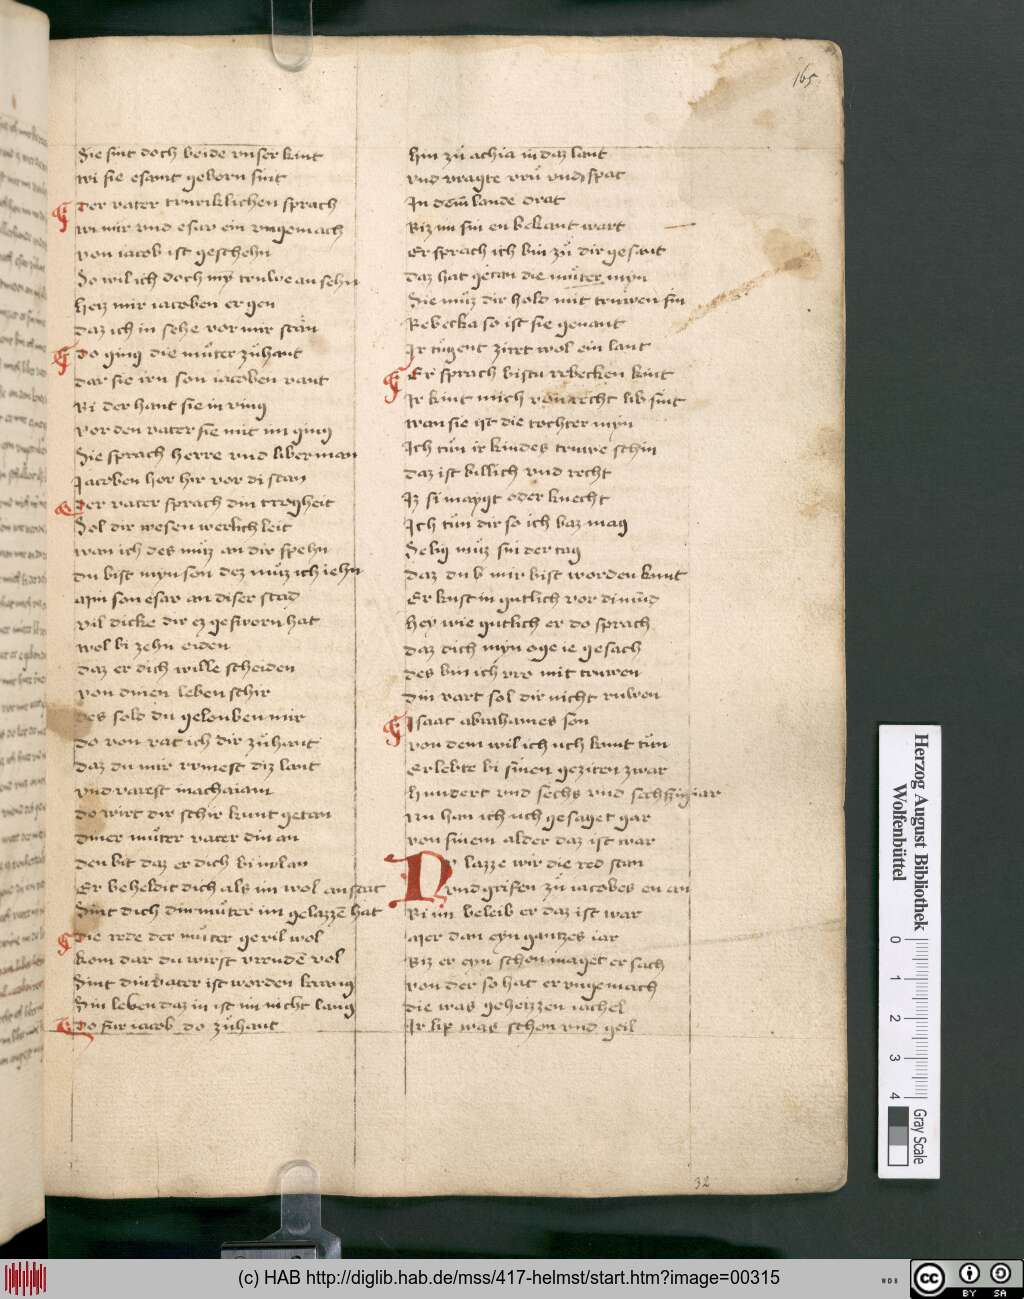 165
Sie sint doch beide vnser kint
wi sie esamt geborn sint
Der vater truriklichen sprach
wi mir vnd esav ein vngemach
von iacob ist geschehn
So wil ich doch my truwe an sehn
heiz mir iacoben er gen
daz ich in sehe vor mir stan
Do ging die muter zuhant
dar sie irn son iacoben vant
Bi der hant sie in ving
vor den vater sie mit im ging
Sie sprach herre vnd liber man
Jacoben hor hir vor di stan
Der vater sprach din trogheit
Sol dir wesen werlich leit
wan ich des muz an dir spehn
du bist myn son dez muz ich iehn
Min son esav an diser stad
vil dicke dir ez gesworn hat
wol bi zehn eiden
daz er dich wille scheiden
von dinen leben schir
des sold du gelouben mir
do von rat ich dir zuhant
daz du mir rvmest diz lant
vnd varest in achaiam
do wirt dir schir kunt getan
diner muter vater din an
den bit daz er dich bi im lan
Er beheldit dich als im wol an stat
Sint dich din muter im gelazzē hat
Die rede der muter geviel wol
kom dar du wirst vreudē vol
Sint din vater ist worden krang
Sin leben daz in ist im nicht lang
Do fur iacob do zuhant
hin zu achia in daz lant
vnd vragte vru vnd spat
In dem lande drat
Biz im sin en bekant wart
Er sprach ich bin zu dir gesant
daz hat getan die muter myn
Sie muz dir hold mit truwen sin
Rebecka so ist sie genant
Ir tugent zirt wol ein lant
Er sprach bistu rebecken kint
Ir kint mich von recht lib sint
wan sie ist die tochter myn
Ich tun ir kindes truwe schin
daz ist billich vnd recht
Iz si mayt oder knecht
Ich tun dir so ich baz mag
Selig muz sin der tag
daz du mir bist worden kunt
Er kust in gutlich vor di mund
hey wie gutlich er do sprach
daz dich myn oge ie gesach
des bin ich vro mit truwen
din vart sol dir nicht ruwen
Isaac abrahames son
von dem wil ich uch kunt tun
Er lebte bi sinen geziten zwar
hundert vnd sechs vnd sechszig iar
Nu han ich uch gesaget gar
von sinem alder daz ist war
Nv lazze wir die red stan
vnd grifen zu iacobes en an
Bi im beleib er daz ist war
Mer dan eyn gantzes iar
Biz er eyn schon maget er sach
von der so hat er vngemach
die was geheizzen rachel
Ir lip was schon vnd geil
32
Herzog August Bibliothek
Wolfenbüttel
0 1 2 3 4
Gray Scale
(c) HAB http://diglib.hab.de/mss/417-helmst/start.htm?image=00315
WDB
cc BY SA